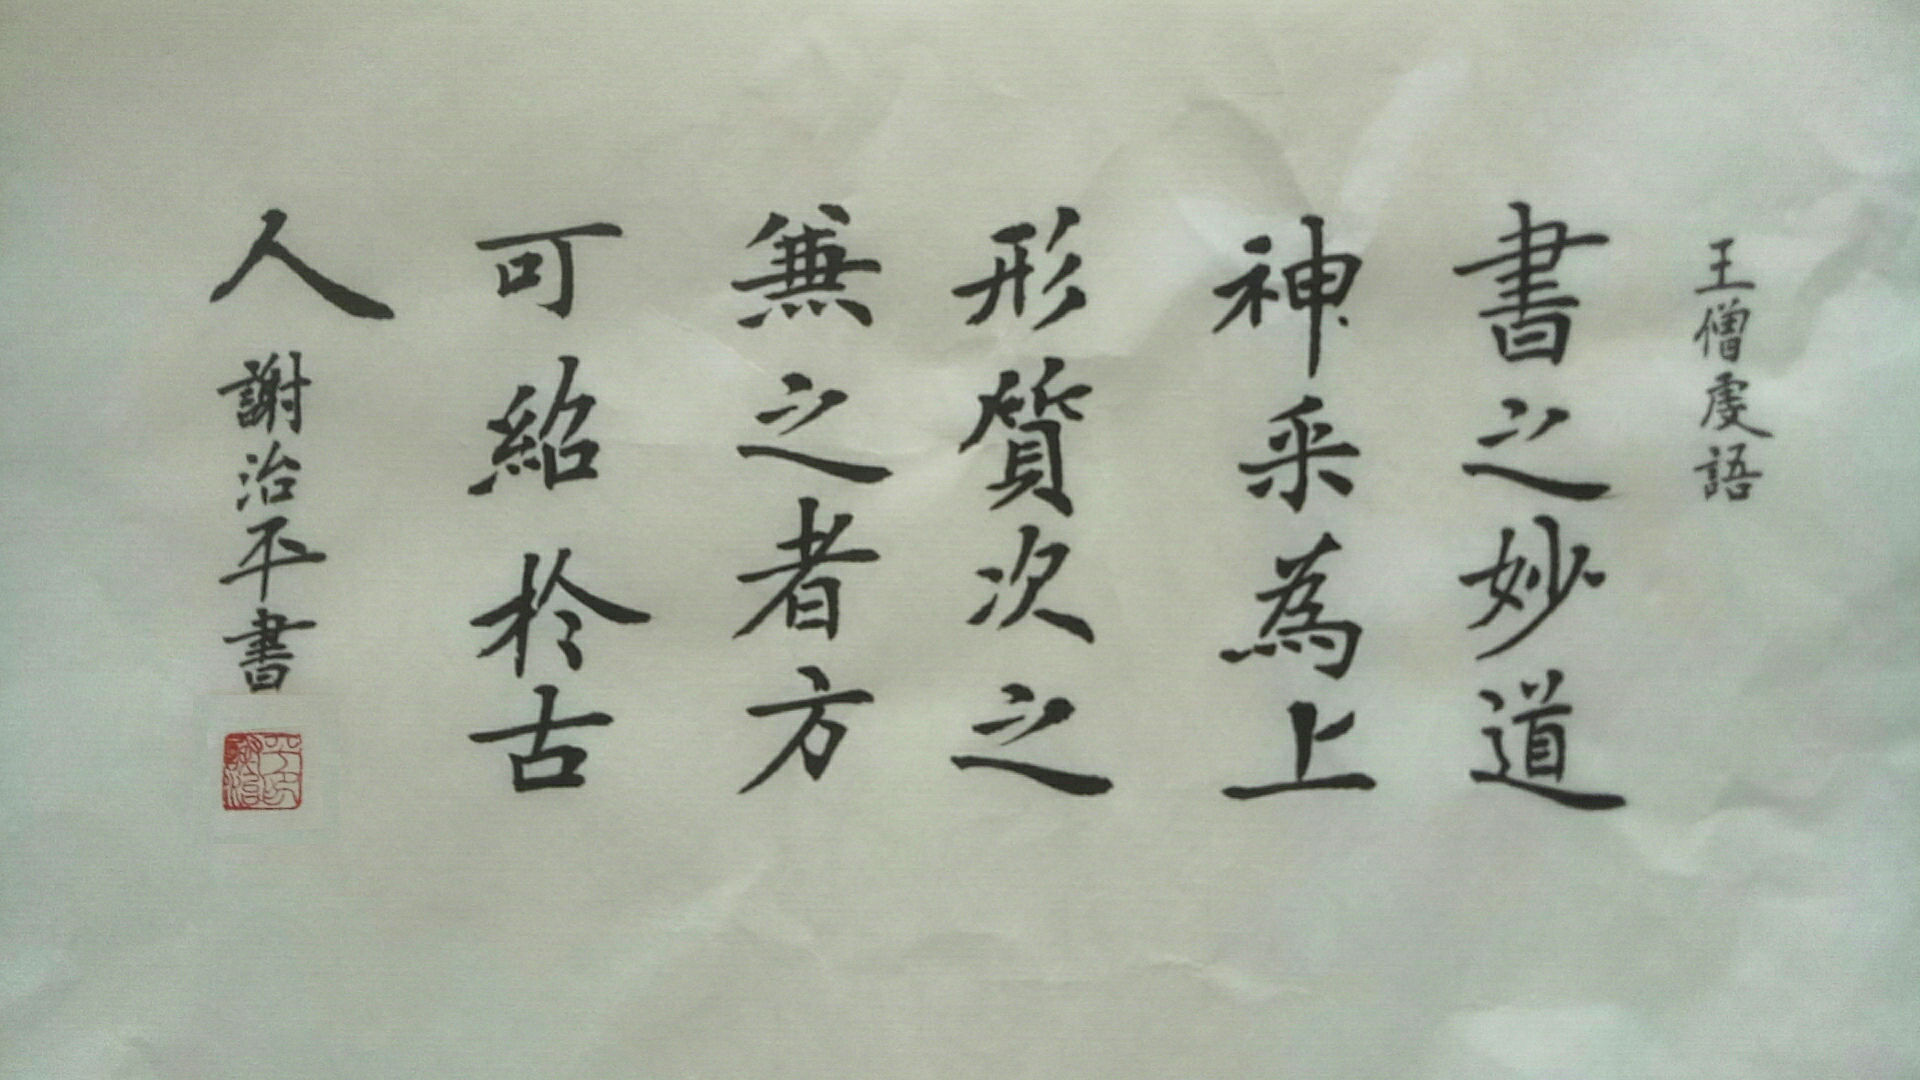 王僧虔語
書之妙道
神采為上
形質次之
兼之者方
可紹於古
人
謝治平書